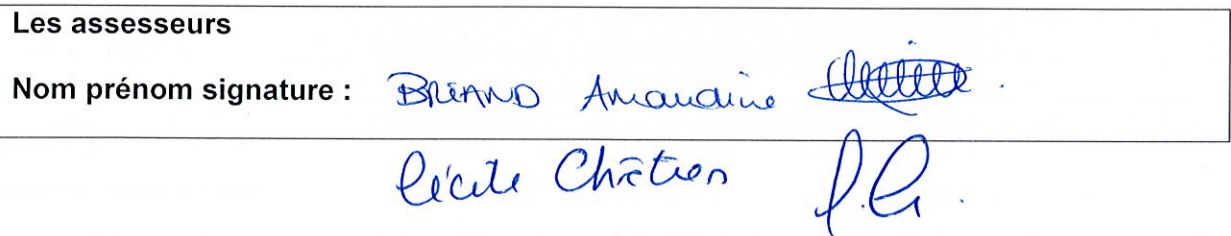 Les assesseurs
Nom prénom signature : BRIAND Amandine
Cécile Chrétien